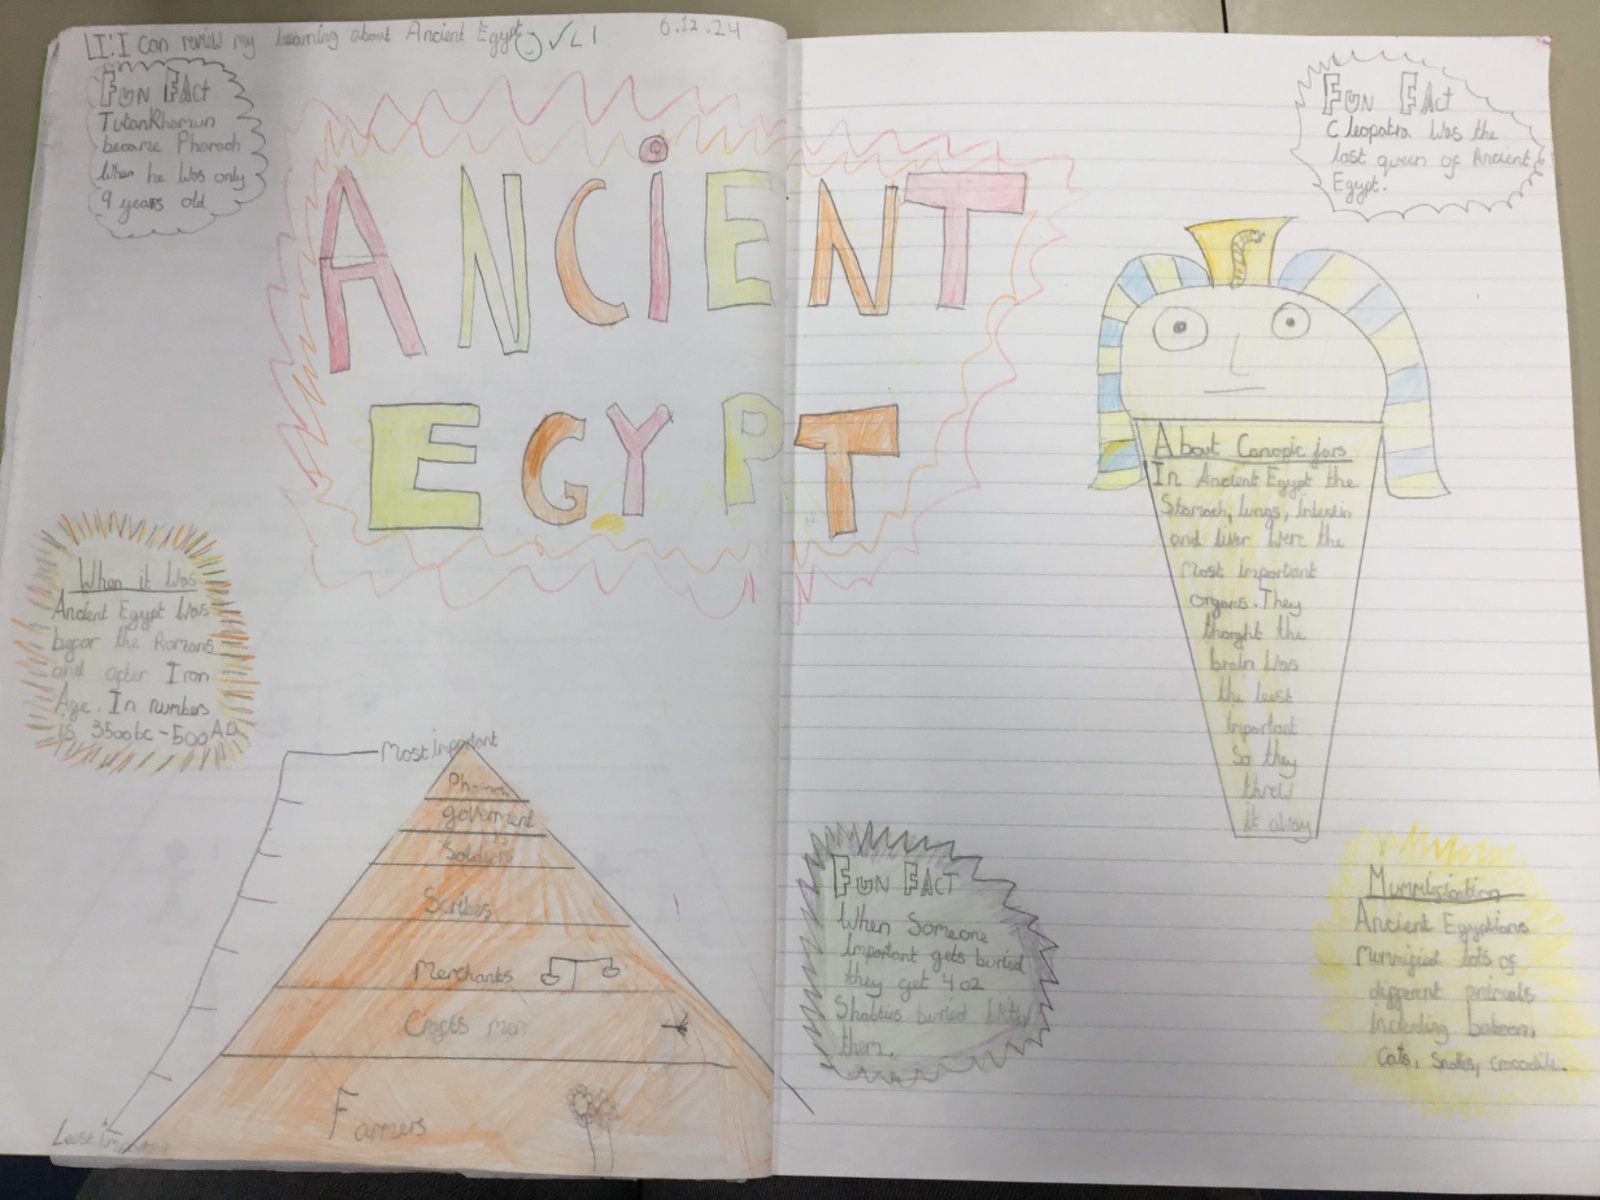 LI: I can review my learning about Ancient Egypt ✓LI 6.12.24
Fun Fact
Tutankhamun
became Pharaoh
when he was only
9 years old
ANCIENT
EGYPT
When it was
Ancient Egypt was
befor the Romans
and after Iron
Age. In numbers
is 3500bc-500AD
Most important
goverment
Soldiers
Scribes
Merchants
Crafts men
Farmers
Least important
Fun Fact
Cleopatra was the
last queen of Ancient
Egypt.
About Canopic jars
In Ancient Egypt the
Stomach, lungs, intestin
and liver were the
most important
organs. They
thorght the
brain was
the leest
important
So they
threw
it away
Fun Fact
When Someone
important gets buried
they get 402
Shabties buried With
them.
Mummification
Ancient Egyptians
mummified lots of
different animals
Including baboon,
Cats, Snakes, crocodile.